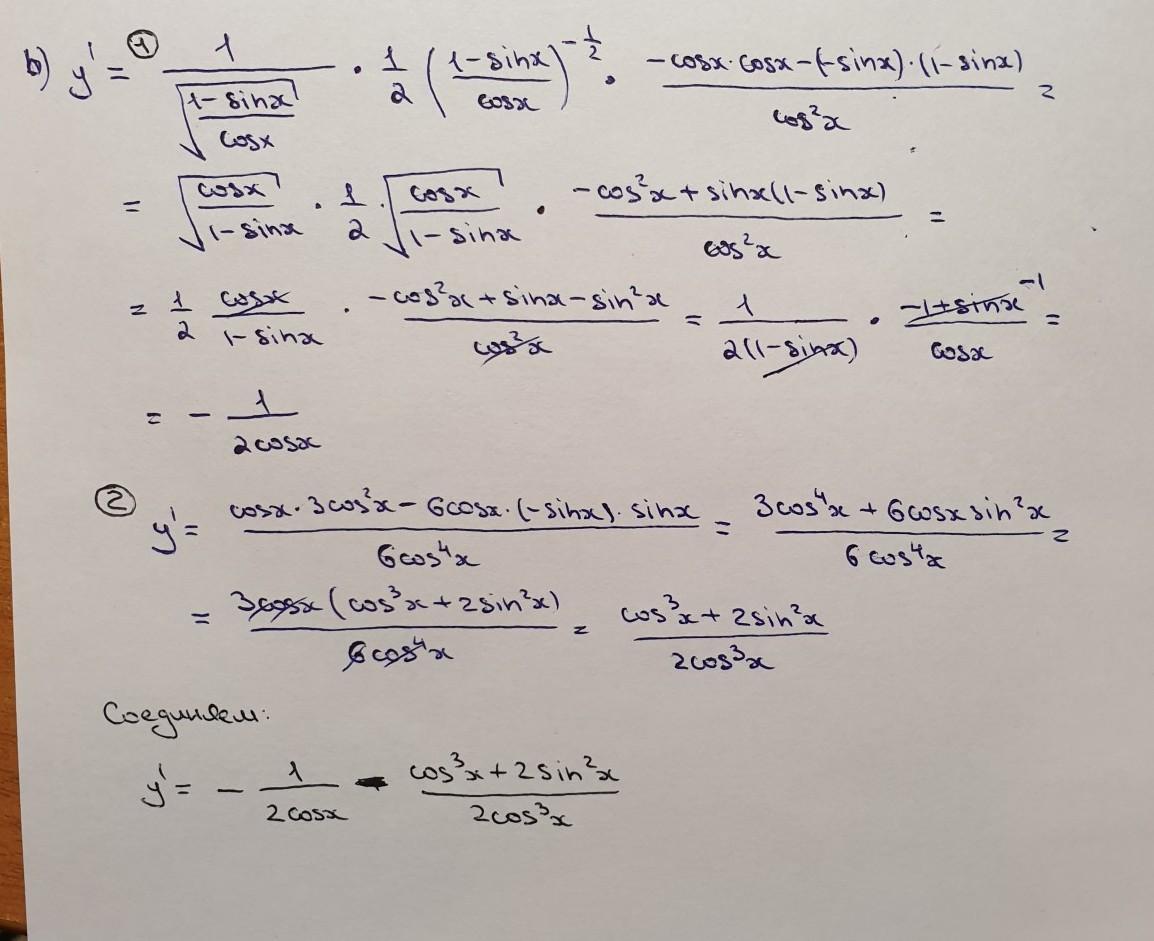 b) y' = ① 1/√((1-sinx)/cosx) · 1/2 ((1-sinx)/cosx)^(-1/2) · (-cosx·cosx-(-sinx)·(1-sinx))/cos²x =
= √(cosx/(1-sinx)) · 1/2 · √(cosx/(1-sinx)) · (-cos²x+sinx(1-sinx))/cos²x =
= 1/2 cosx/(1-sinx) · (-cos²x+sinx-sin²x)/cos²x = 1/(2(1-sinx)) · (-1+sinx)/cosx ^-1 =
= - 1/(2cosx)
② y' = (cosx·3cos²x-6cosx·(-sinx)·sinx)/(6cos⁴x) = (3cos⁴x+6cosx sin²x)/(6cos⁴x) =
= 3cosx(cos³x+2sin²x)/(6cos⁴x) = (cos³x+2sin²x)/(2cos³x)
Соединяем:
y' = - 1/(2cosx) - (cos³x+2sin²x)/(2cos³x)